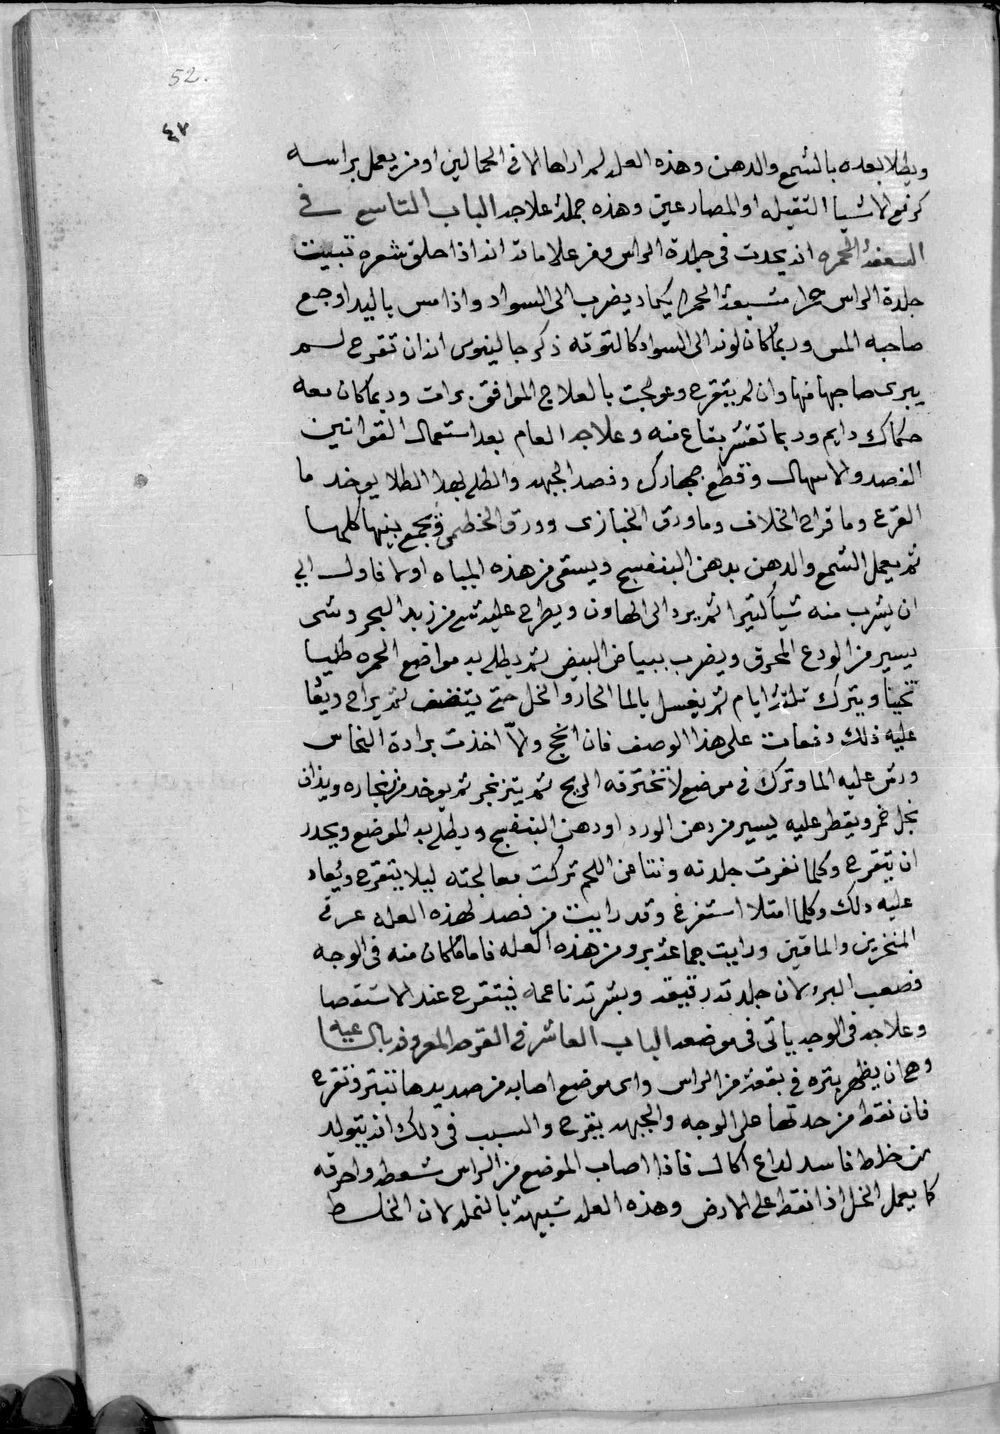 52.
٤٧
ويطلا بعده بالشمع والدهن وهذه العله لم اراها الا في الحمالين او من يعمل براسه
كرفع الاشيا الثقيله او المصارعين وهذه جملة علاجه الباب التاسع في
السعفة الحمره انه يحدث في جلدة الراس ومن علاماته انه اذا حلق شعره تبينت
جلدة الراس حمرا مشبعة الحمره يكاد يضرب الى السواد واذا مس باليد اوجع
صاحبه المس وربما كان لونه الى السواد كالتوته ذكر جالينوس انه ان تقرح لم
يبرى صاحبها منها وان لم يتقرح وعولجت بالعلاج الموافق برات وربما كان معه
حكاك دايم وربما تقشر بقاع منه وعلاجه العام بعد استعمال القوانين
الفصد والاسهال وقطع جهارك وفصد الجبهه والطلي بهذا الطلا يوخد ما
القرع وما قراح الخلاف وما ورق الخبازى وورق الخطمى ويجمع بينها كلها
ثم يعمل الشمع والدهن بدهن البنفسج ويسقى من هذه المياه اولا فاول الى
ان يشرب منه شيا كثيرا ثم يرد الى الهاون ويطرح عليه شي من زبد البحر وشى
يسير من الودع المحرق ويضرب ببياض البيض ثم يطلى به مواضع الحمره طليا
ثخينا ويترك ثلثة ايام ثم يغسل بالما الحار والخل حتى يتنضف ثم يراح ويعا
عليه ذلك دفعات على هذا الوصف فان انجح والا اخذت برادة النحاس
ورش عليه الما وترك في موضع لا تخترقه الريح ثم يتزنجر ثم يوخد من زنجاره ويذاف
بخل خمر ويقطر عليه يسير من دهن الورد او دهن البنفسج ويطلى به الموضع ويحدر
ان يتقرح وكلما نفرت جلدته ونتا من اللحم تركت معالجته ليلا يتقرح ويعاد
عليه دلك وكلما امتلا استفرغ وقد رايت من فصد لهذه العله عرقي
المنخرين والماقين ورايت جماعة برو من هذه العله فاما ما كان منه في الوجه
فصعب البرء لان جلدته رقيقه وبشرته ناعمه فيتقرح عند الاستقصا
وعلاجه في الوجه ياتى في موضعه الباب العاشر في القرحه المعروفه بالساعيه
وهى ان يظهر بثره في بقعة من الراس واى موضع اصابه من صديدها تبثر وتقرح
فان نقط من حدتها على الوجه والجبهه يتقرح والسبب في دلك انه يتولد
من خلط فاسد لداع اكال فاذا اصاب الموضع من الراس شعطه واحرقه
كما يعمل الخل اذا نقط على الارض وهذه العله شبيهة بالنمله لان الخلط